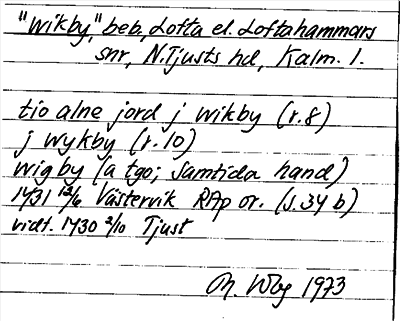 "Wikby," beb. Lofta el. Loftahammars
snr, N. Tjusts hd, Kalm. l.
tio alne jord j wikby (r. 8)
j wykby (r. 10)
wigby (a tgo; samtida hand)
1431 12/6 Västervik RAp or. (s. 34 b)
vidt. 1430 2/10 Tjust
M. Wbg 1973